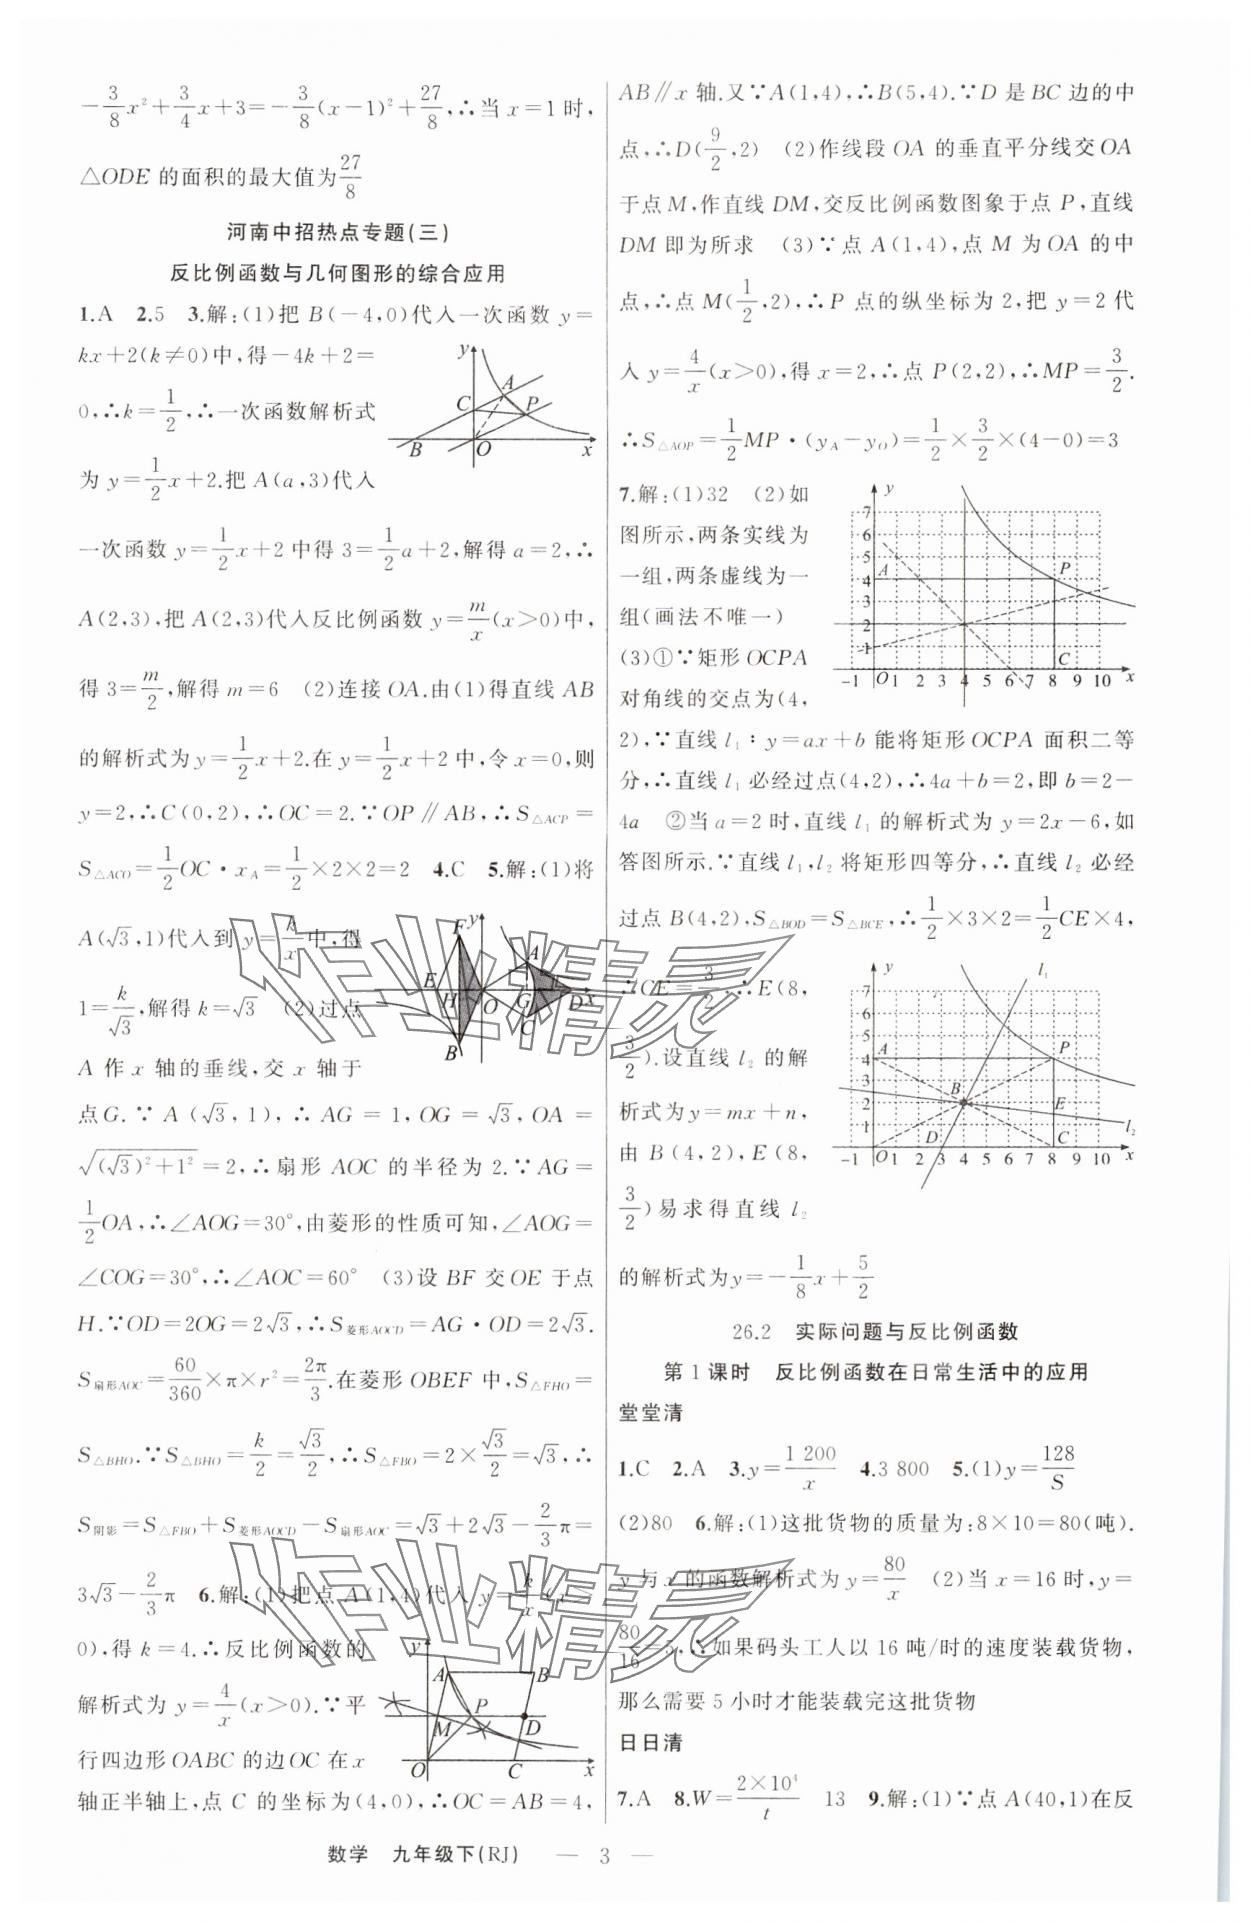 $-\frac{3}{8}x^2+\frac{3}{4}x+3=-\frac{3}{8}(x-1)^2+\frac{27}{8}$,∴当 x=1 时,
△ODE 的面积的最大值为$\frac{27}{8}$
河南中招热点专题(三)
反比例函数与几何图形的综合应用
1.A 2.5 3.解:(1)把 B(-4,0)代入一次函数 y=
kx+2(k≠0)中,得-4k+2=
0,∴k=$\frac{1}{2}$,∴一次函数解析式
为 y=$\frac{1}{2}$x+2.把 A(a,3)代入
一次函数 y=$\frac{1}{2}$x+2 中得 3=$\frac{1}{2}$a+2,解得 a=2,∴
A(2,3),把 A(2,3)代入反比例函数 y=$\frac{m}{x}$(x>0)中,
得 3=$\frac{m}{2}$,解得 m=6 (2)连接 OA.由(1)得直线 AB
的解析式为 y=$\frac{1}{2}$x+2.在 y=$\frac{1}{2}$x+2 中,令 x=0,则
y=2,∴C(0,2),∴OC=2.∵OP∥AB,∴$S_{△ACP}$=
$S_{△ACO}$=$\frac{1}{2}$OC·$x_A$=$\frac{1}{2}$×2×2=2 4.C 5.解:(1)将
A($\sqrt{3}$,1)代入到 y=$\frac{k}{x}$中,得
1=$\frac{k}{\sqrt{3}}$,解得 k=$\sqrt{3}$ (2)过点
A 作 x 轴的垂线,交 x 轴于
点G.∵A($\sqrt{3}$,1),∴AG=1,OG=$\sqrt{3}$,OA=
$\sqrt{(\sqrt{3})^2+1^2}$=2,∴扇形 AOC 的半径为 2.∵AG=
$\frac{1}{2}$OA,∴∠AOG=30°,由菱形的性质可知,∠AOG=
∠COG=30°,∴∠AOC=60° (3)设 BF 交 OE 于点
H.∵OD=2OG=2$\sqrt{3}$,∴$S_{菱形AOCD}$=AG·OD=2$\sqrt{3}$.
$S_{扇形AOC}$=$\frac{60}{360}$×π×r²=$\frac{2π}{3}$.在菱形 OBEF 中,$S_{△FHO}$=
$S_{△BHO}$.∵$S_{△BHO}$=$\frac{k}{2}$=$\frac{\sqrt{3}}{2}$,∴$S_{△FBO}$=2×$\frac{\sqrt{3}}{2}$=$\sqrt{3}$,∴
$S_{阴影}$=$S_{△FBO}$+$S_{菱形AOCD}$-$S_{扇形AOC}$=$\sqrt{3}$+2$\sqrt{3}$-$\frac{2}{3}$π=
3$\sqrt{3}$-$\frac{2}{3}$π 6.解:(1)把点 A(1,4)代入 y=$\frac{k}{x}$(x>
0),得 k=4.∴反比例函数的
解析式为 y=$\frac{4}{x}$(x>0).∵平
行四边形 OABC 的边 OC 在 x
轴正半轴上,点 C 的坐标为(4,0),∴OC=AB=4,
AB∥x 轴.又∵A(1,4),∴B(5,4).∵D 是 BC 边的中
点,∴D($\frac{9}{2}$,2) (2)作线段 OA 的垂直平分线交 OA
于点 M,作直线 DM,交反比例函数图象于点 P,直线
DM 即为所求 (3)∵点 A(1,4),点 M 为 OA 的中
点,∴点 M($\frac{1}{2}$,2),∴P 点的纵坐标为 2,把 y=2 代
入 y=$\frac{4}{x}$(x>0),得 x=2,∴点 P(2,2),∴MP=$\frac{3}{2}$.
∴$S_{△AOP}$=$\frac{1}{2}$MP·($y_A$-$y_O$)=$\frac{1}{2}$×$\frac{3}{2}$×(4-0)=3
7.解:(1)32 (2)如
图所示,两条实线为
一组,两条虚线为一
组(画法不唯一)
(3)①∵矩形 OCPA
对角线的交点为(4,
2),∵直线 $l_1$:y=ax+b 能将矩形 OCPA 面积二等
分,∴直线 $l_1$ 必经过点(4,2),∴4a+b=2,即 b=2-
4a ②当 a=2 时,直线 $l_1$ 的解析式为 y=2x-6,如
答图所示.∵直线 $l_1$,$l_2$ 将矩形四等分,∴直线 $l_2$ 必经
过点 B(4,2),$S_{△BOD}$=$S_{△BCE}$,∴$\frac{1}{2}$×3×2=$\frac{1}{2}$CE×4,
∴CE=$\frac{3}{2}$,∴E(8,
$\frac{3}{2}$).设直线 $l_2$ 的解
析式为 y=mx+n,
由 B(4,2),E(8,
$\frac{3}{2}$)易求得直线 $l_2$
的解析式为 y=-$\frac{1}{8}$x+$\frac{5}{2}$
26.2 实际问题与反比例函数
第 1 课时 反比例函数在日常生活中的应用
堂堂清
1.C 2.A 3.y=$\frac{1 200}{x}$ 4.3 800 5.(1)y=$\frac{128}{S}$
(2)80 6.解:(1)这批货物的质量为:8×10=80(吨).
y 与 x 的函数解析式为 y=$\frac{80}{x}$ (2)当 x=16 时,y=
$\frac{80}{16}$=5,∴如果码头工人以 16 吨/时的速度装载货物,
那么需要 5 小时才能装载完这批货物
日日清
7.A 8.W=$\frac{2×10^4}{t}$ 13 9.解:(1)∵点 A(40,1)在反
数学 九年级下(RJ) — 3 —
作业精灵
作业精灵